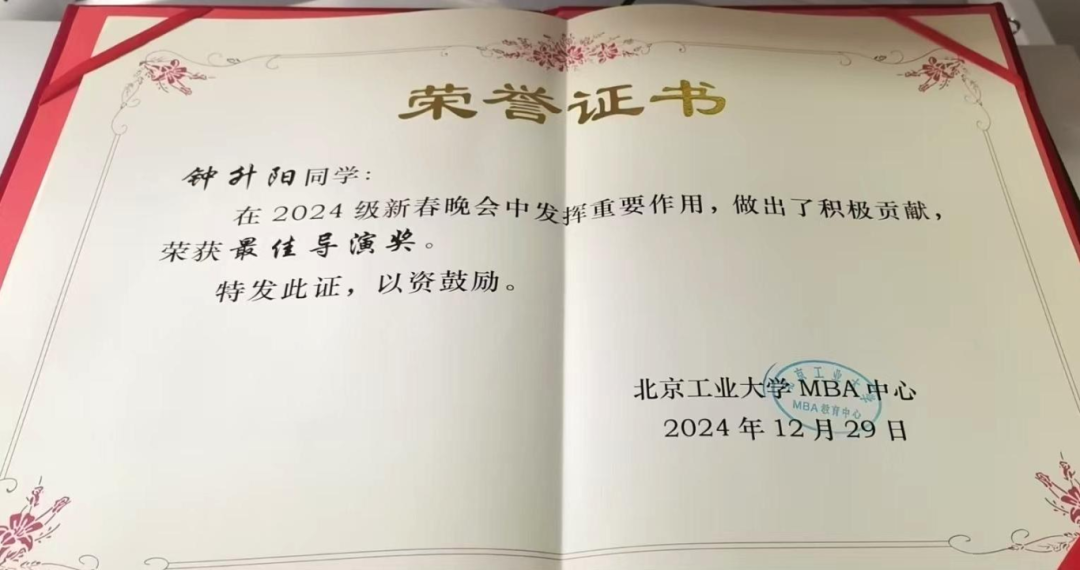 荣誉证书
钟升阳同学：
在 2024 级新春晚会中发挥重要作用，做出了积极贡献，
荣获最佳导演奖。
特发此证，以资鼓励。
北京工业大学 MBA 中心
2024 年 12 月 29 日
北京工业大学
MBA教育中心